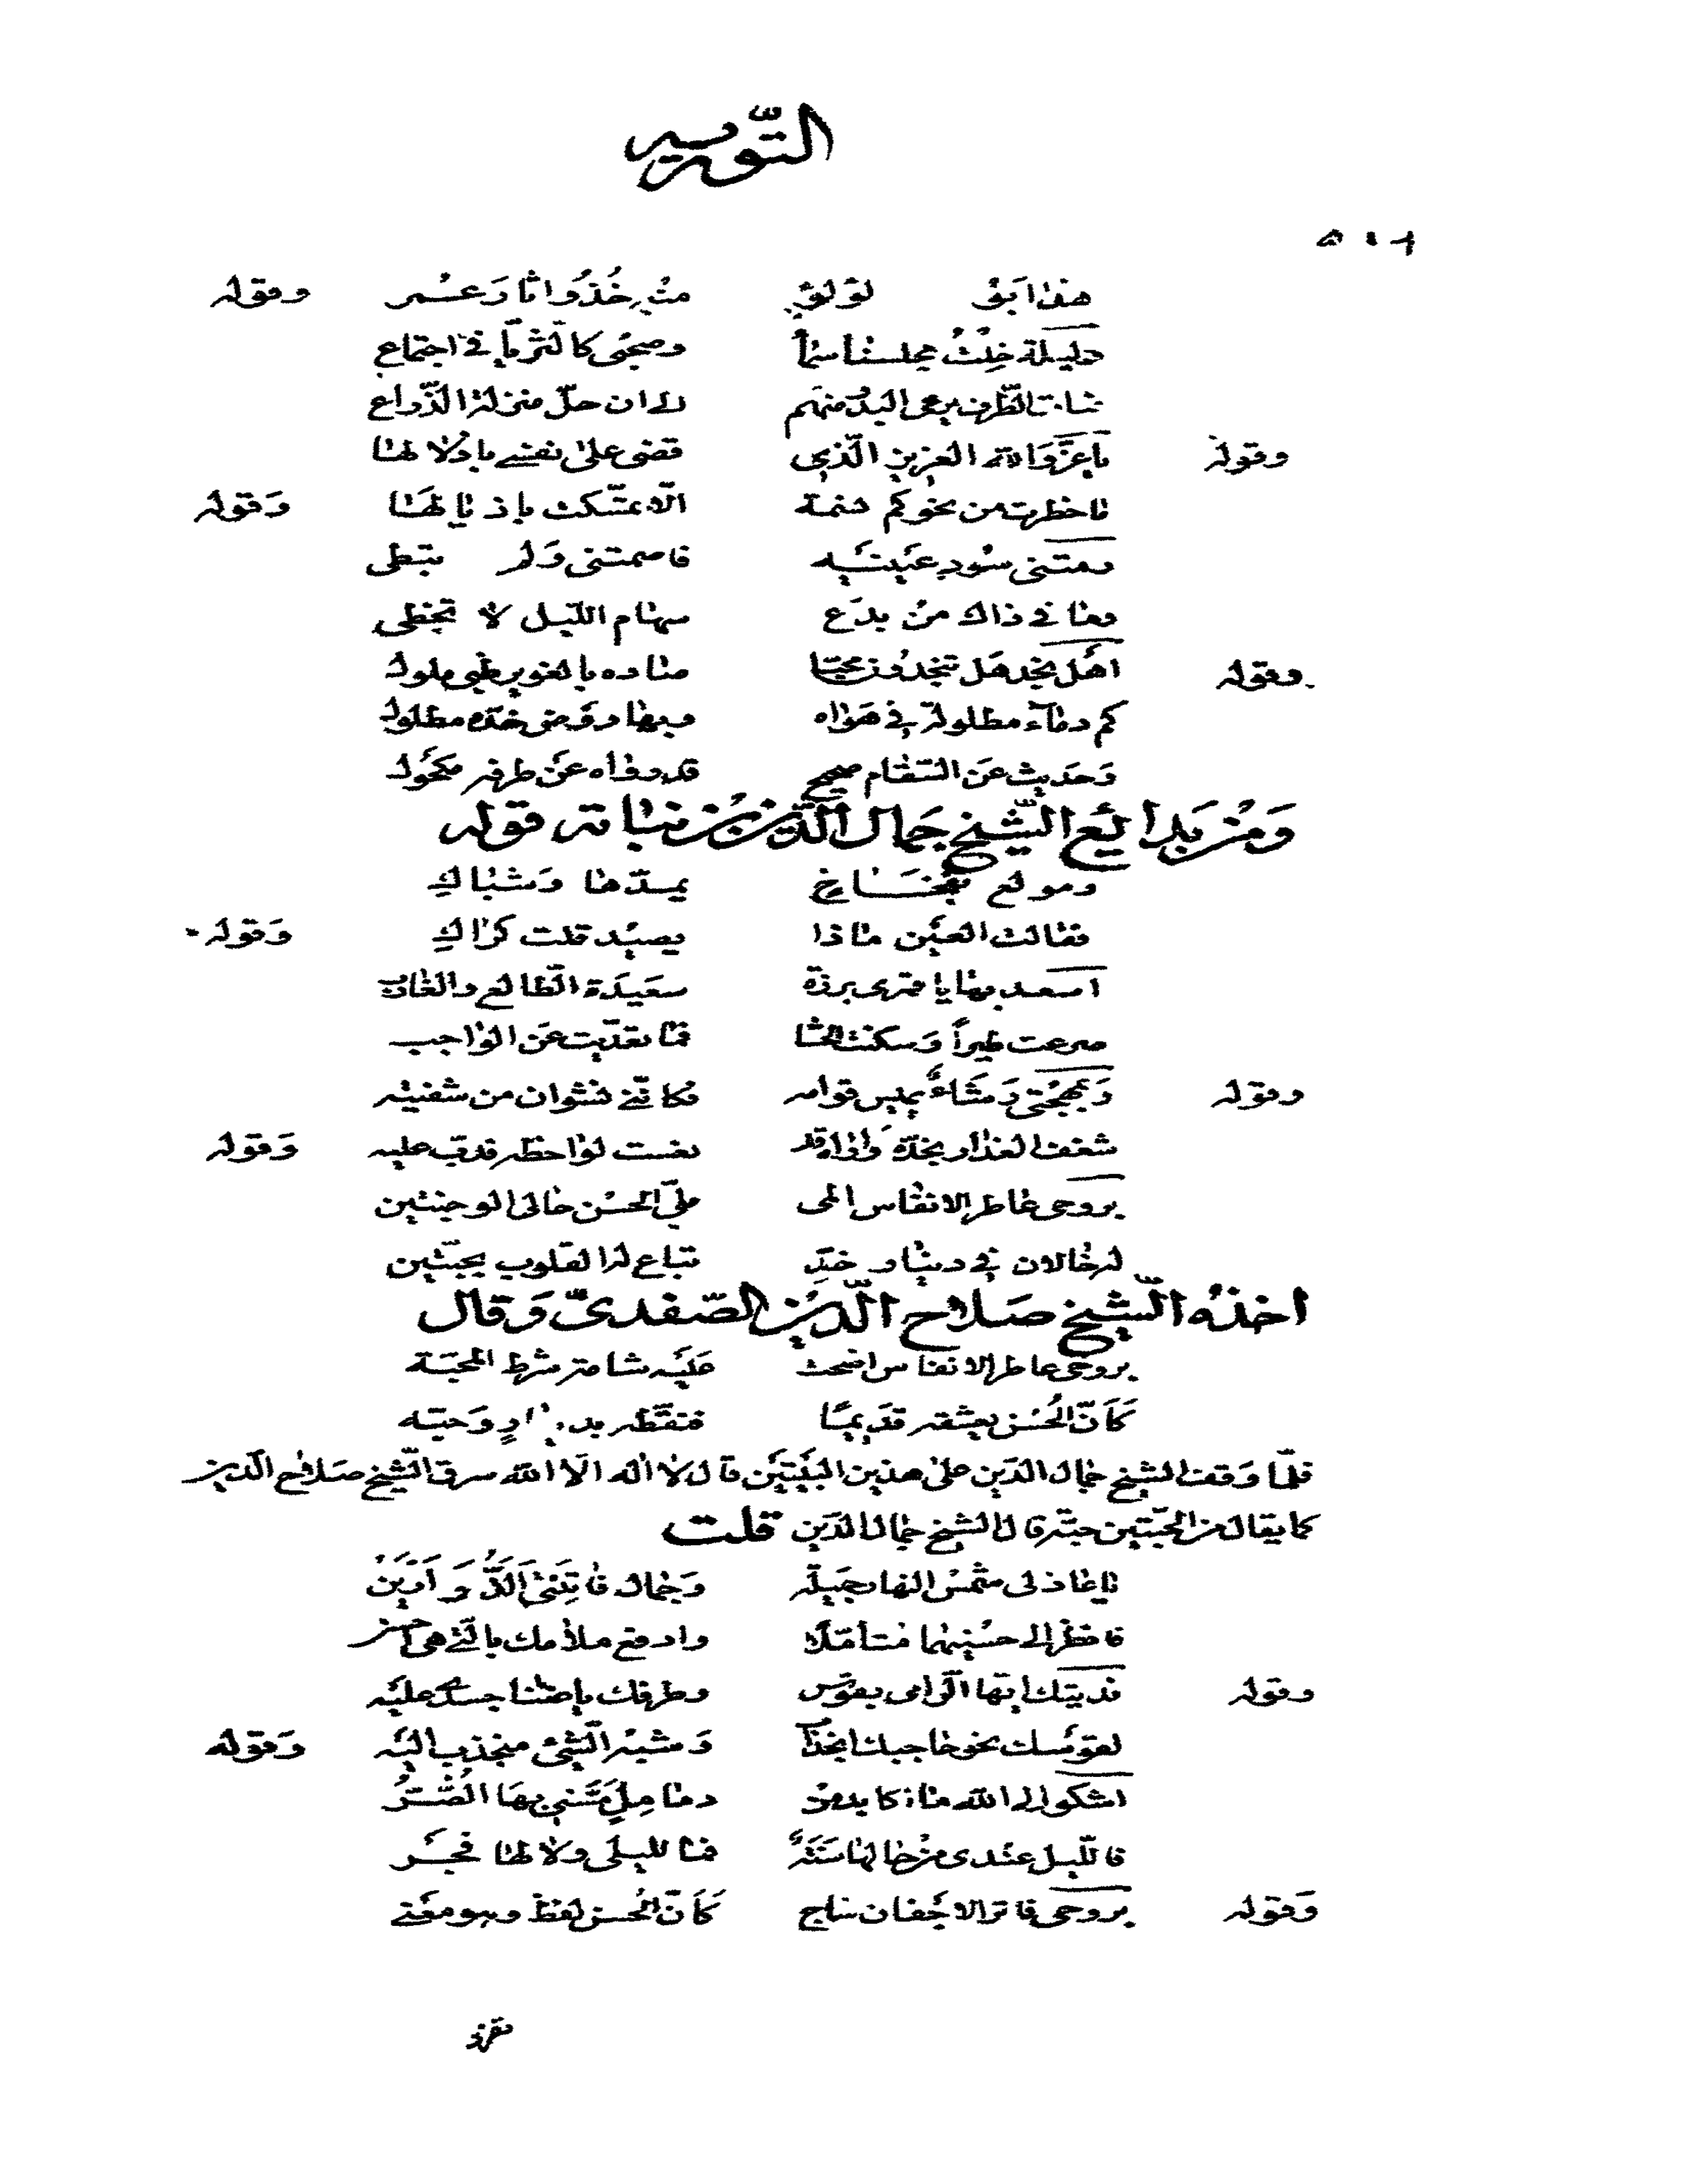 التورية
هذا ابو لؤلؤ منه خذوا ثار عمر وقوله
وليلة خلت مجلسنا سماً وصحبى كالثريا في اجتماع
شابت الطرف يرعى البدر منهم الى ان حل منزلة الذراع
وقوله يا عز والله العزيز الذي قضى على نفسي باذلالها
ما خطرت من نحوكم نسمة الا تمسكت باذيالها وقوله
رمتنى سود عينيه فاصمتنى ولم تبطى
وما في ذاك من بدع سهام الليل لا تخطى
وقوله اهل نجد هل تنجدون محبا صاده بالغوير ظبي ملول
كم دماء مطلولة في هواه وبها روض خده مطلول
وحديث عن السقام صحيح قد رواه عن طرفه مكحول
ومن بدائع الشيخ جمال الدين بن نباتة قوله
ومولع بفخاخ يمدها وشباك
فقالت العين ماذا يصيد قلت كراك وقوله
اسعد بها يا قمرى برزة سعيدة الطالع والغارب
صرعت طيراً وسكنت الحشا فما تعديت عن الواجب
وقوله وبمهجتي رشاء يميس قوامه فكانه نشوان من شفتيه
شغف العذار بخده واراه قد نعست لواحظه فدب عليه وقوله
بروحى عاطر الانفاس المى ملي الحسن حالى الوجنتين
له خالان في دينار خد تباع له القلوب بحبتين
اخذه الشيخ صلاح الدين الصفدي وقال
بروحى عاطر الانفاس اضحت عليه شامة شرط المحبة
كان الحسن يعشقه قديما فنقطه بدينار وحبه
فلما وقف الشيخ جمال الدين على هذين البيتين قال لا اله الا الله سرق الشيخ صلاح الدين
كما يقال من الحبتين حبة قال الشيخ جمال الدين قلت
يا عاذلى شمس النهار جميلة وجمال فاتنتى الذ وازين
فانظر الى حسنيهما متأملا وادفع ملامك بالتي هي احسن
وقوله فديتك ايها الرامى بقوس وطرف يا ضنا جسدى عليه
لقوسك نحو حاجبك انجذاب وشبه الشئ منجذب اليه وقوله
اشكو الى الله ما اكابده من وما مسنى بها الضر
فالليل عندى من حالها سنة فما لليلى ولا لها فجر
وقوله بروحى فاتر الاجفان ساج كان الحسن لفظ وهو معنى